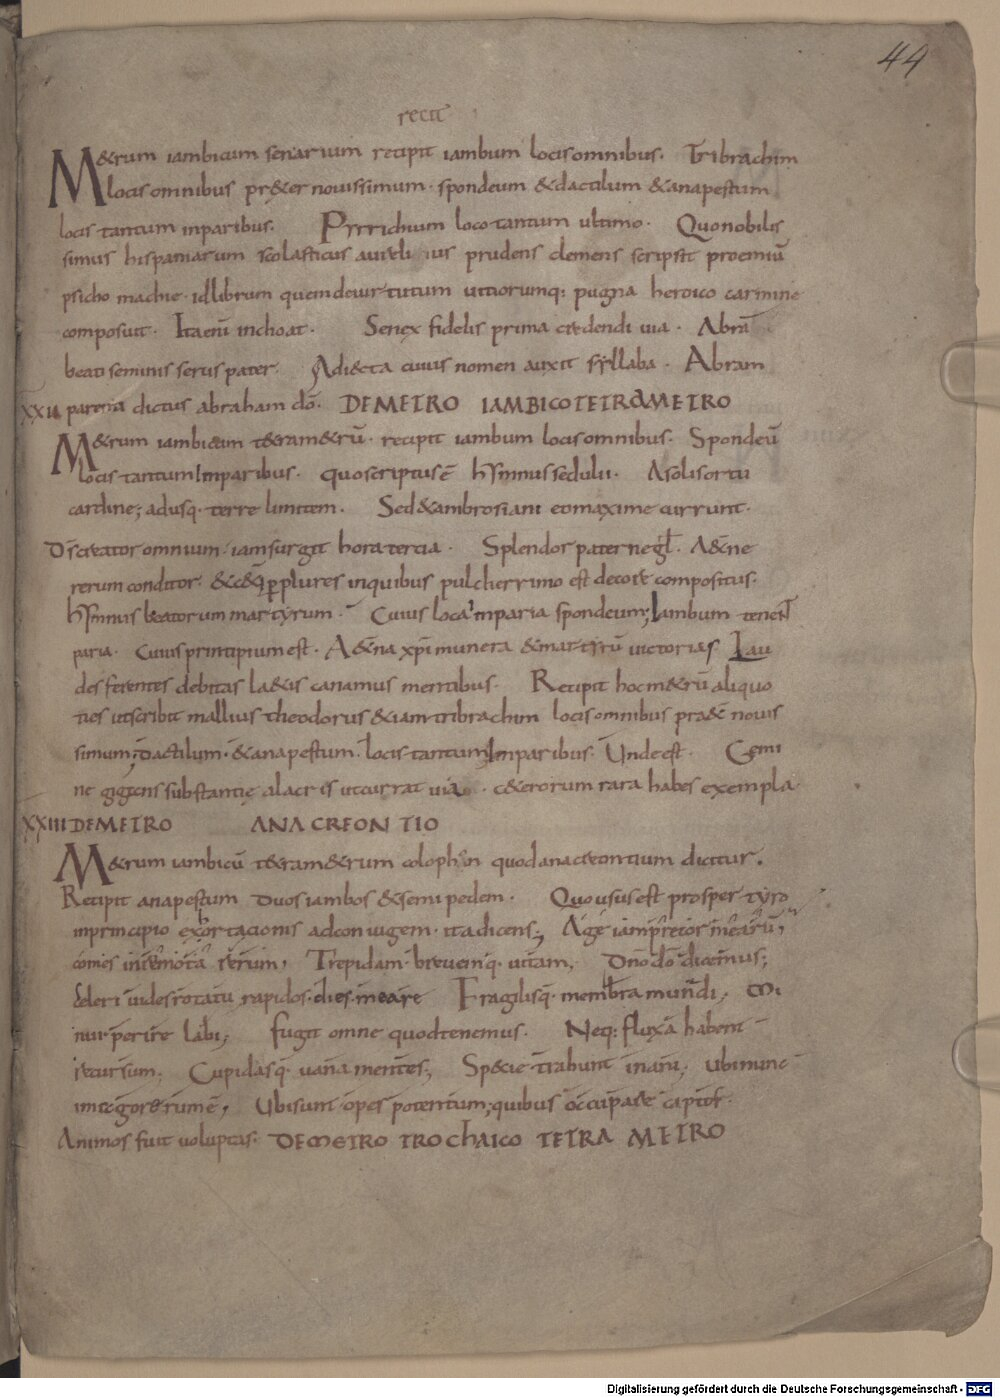 44
recit
M&rum iambicum senarium recipit iambum locis omnibus. Tribrachim
locis omnibus pr&er nouissimum. spondeum & dactilum & anapestum
locis tantum inparibus. Pirrichium loco tantum ultimo. Quo nobilis
simus hispaniarum scolasticus aureli ius prudens clemens scripsit proemiū
psicho machie. id librum quem de uirtutum uitiorumq: pugna heroico carmine
composuit. Ita eni inchoat. Senex fidelis prima credendi uia. Abrā
beati seminis serus pater. Adiecta cuius nomen auxit syllaba. Abram
XXII parenti dictus abraham dō. DE METRO IAMBICO TETRAMETRO
M&rum iambicum t&ram&rū. recipit iambum locis omnibus. Spondeū
locis tantum Inparibus. quo scriptus ē hymnus sedulii. A solis ortu
cardine; adusq. terre limitem. Sed & ambrosiani eo maxime currunt.
Ds creator omnium. iam surgit hora tercia. Splendor paterne gł. A&ne
rerum conditor. & c&. plures in quibus pulcherrimo est decore compositus.
hymnus beatorum martyrum. Cuius loca inparia spondeum; Iambum tenent
paria. Cuius principium est. A&na xpi munera & martyrū uictorias Lau
des ferentes debitas la&is canamus mentibus. Recipit hoc m&rū aliquo
ties ut scribit mallius theodorus & iam tribrachim locis omnibus pra& nouis
simum; Dactilum. & anapestum. locis tantum Inparibus. Unde est. Gemi
ne gigens substantie alacris ut currat uia. c&erorum rara habes exempla.
XXIII DE METRO ANACREONTIO
M&rum iambicū t&ram&rum colophon quod anacreontium dicitur.
Recipit anapestum Duos iambos & semipedem. Quo usus est prosper tyro
in principio exortacionis ad coniugem. ita dicens; Age iam precor mearū,
comes inremota rerum, Trepidam breuemq. uitam, Dno dō dicemus;
Celeri uides rotatu rapidos dies meare Fragilisq. membra mundi, Mi
nui. perire labi, fugit omne quod tenemus. Neq: fluxa habent
recursum. Cupidasq. uana mentes, Specie trahunt inani, Ubi nunc
imago rerum ē, Ubi sunt opes potentum, quibus occupare captos
Animos fuit uoluptas. DE METRO TROCHAICO TETRA METRO
Digitalisierung gefördert durch die Deutsche Forschungsgemeinschaft - DFG